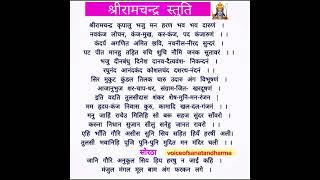 श्रीरामचन्द्र स्तुति
श्रीरामचन्द्र कृपालु भजु मन हरण भव भय दारुणं ।
नवकंज लोचन, कंज-मुख, कर-कंज, पद कंजारुणं ।।
कंदर्प अगणित अमित छवि, नवनील-नीरद सुन्दरं ।
पट पीत मानहु तड़ित रुचि शुचि नौमि जनक सुतावरं ।।
भजु दीनबंधु दिनेश दानव-दैत्यवंश- निकन्दनं ।
रघुनंद आनंदकंद कोशलचंद दशरथ-नंदनं ।।
सिर मुकुट कुंडल तिलक चारु उदार अंग विभूषणं ।
आजानुभुज शर-चाप-धर, संग्राम-जित- खरदूषणं ।।
इति वदति तुलसीदास शंकर शेष-मुनि-मन-रंजनं ।
मम हृदय-कंज निवास कुरु, कामादि खल-दल-गंजनं ।।
मनु जाहिं राचेउ मिलिहि सो बरु सहज सुंदर साँवरो ।
करुना निधान सुजान सीलु सनेहु जानत रावरो ।।
एहि भाँति गौरि असीस सुनि सिय सहित हियँ हरषीं अली।
तुलसी भवानिहि पूजि पुनि-पुनि मुदित मन मंदिर चली ।।
सोरठा voiceofsanatandharma
जानि गौरि अनुकूल सिय हिय हरषु न जाई कहि ।
मंजुल मंगल मूल बाम अंग फरकन लगे ।